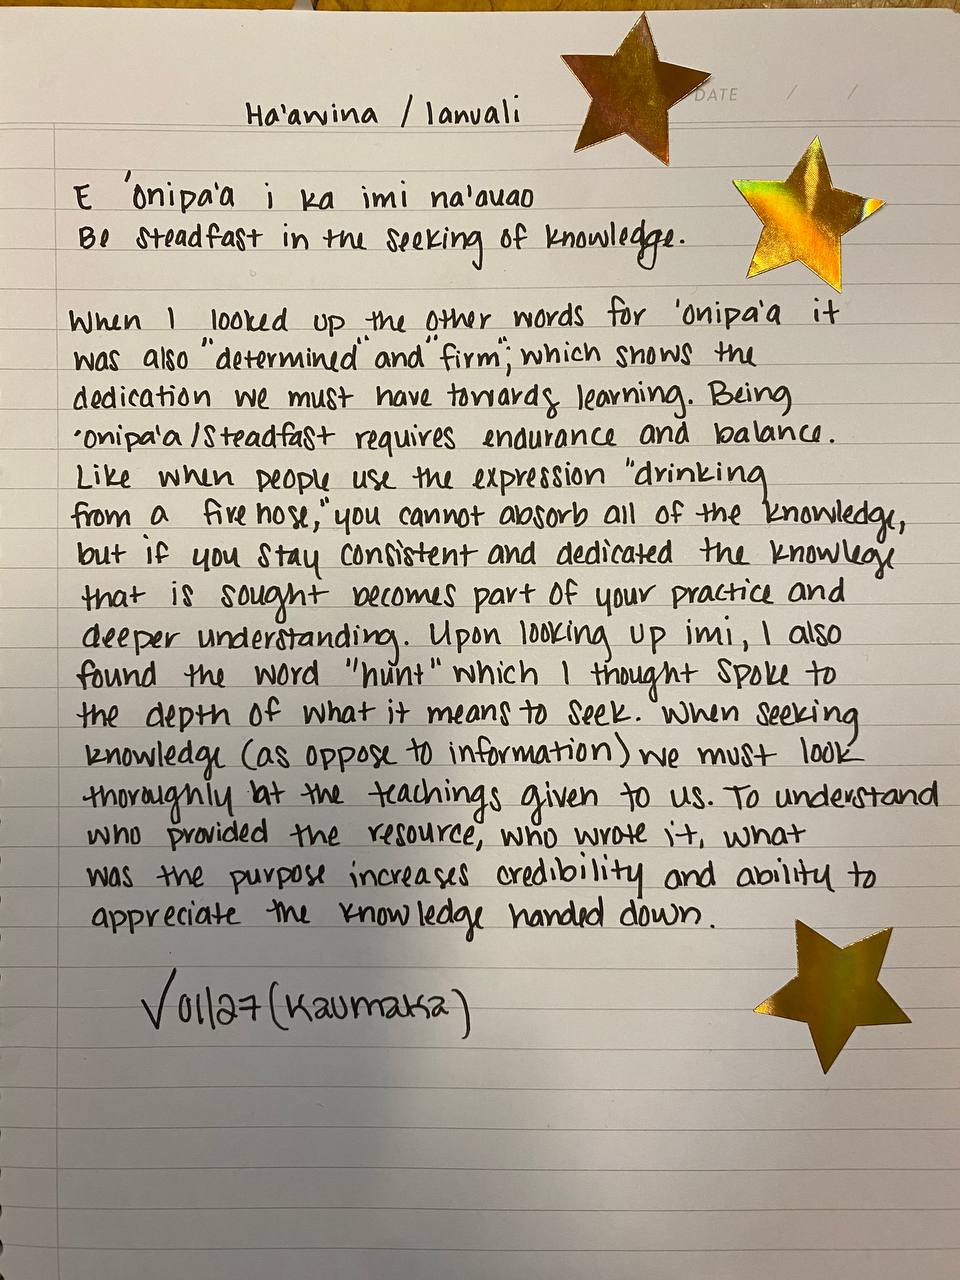 Ha'awina / Ianuali
DATE / /
E 'onipa'a i ka imi na'auao
Be steadfast in the seeking of knowledge.
When I looked up the other words for 'onipa'a it
was also "determined" and "firm", which shows the
dedication we must have towards learning. Being
'onipa'a/steadfast requires endurance and balance.
Like when people use the expression "drinking
from a fire hose," you cannot absorb all of the knowledge,
but if you stay consistent and dedicated the knowlege
that is sought becomes part of your practice and
deeper understanding. Upon looking up imi, I also
found the word "hunt" which I thought spoke to
the depth of what it means to seek. When seeking
knowledge (as oppose to information) we must look
thoroughly at the teachings given to us. To understand
who provided the resource, who wrote it, what
was the purpose increases credibility and ability to
appreciate the knowledge handed down.
√ 01/27 (Kaumaka)